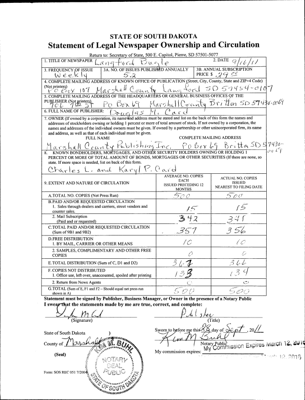 STATE OF SOUTH DAKOTA
Statement of Legal Newspaper Ownership and Circulation
Return to: Secretary of State, 500 E. Capitol, Pierre, SD 57501-5077
1. TITLE OF NEWSPAPER Langford Bugle
2. DATE 9/16/11
3. FREQUENCY OF ISSUE Weekly
3A. NO. OF ISSUES PUBLISHED ANNUALLY 52
3B. ANNUAL SUBSCRIPTION PRICE $
4. COMPLETE MAILING ADDRESS OF KNOWN OFFICE OF PUBLICATION (Street, City, County, State and ZIP+4 Code)
(Not printers)
Marshall County Langford SD 57454
5. COMPLETE MAILING ADDRESS OF THE HEADQUARTERS OF GENERAL BUSINESS OFFICES OF THE
PUBLISHER (Not printer)
PO Box 69 Marshall County Britton SD 57430
6. FULL NAME AND COMPLETE MAILING ADDRESS OF PUBLISHER
Douglas M. Card
7. OWNER (If owned by a corporation, its name and address must be stated and also the names and
addresses of stockholders owning or holding 1 percent or more of total amount of stock. If not owned by a corporation, the
names and addresses of the individual owners must be given. If owned by a partnership or other unincorporated firm, its name
and address, as well as that of each individual must be given.
FULL NAME COMPLETE MAILING ADDRESS
Marshall County Publishing Inc. PO Box 69 Britton SD 57430
8. KNOWN BONDHOLDERS, MORTGAGEES, AND OTHER SECURITY HOLDERS OWNING OR HOLDING 1
PERCENT OR MORE OF TOTAL AMOUNT OF BONDS, MORTGAGES OR OTHER SECURITIES (If there are none, so
state. If more space is needed, list on back of this form.
Charles L. and Karyl P. Card
9. EXTENT AND NATURE OF CIRCULATION
AVERAGE NO. COPIES EACH ISSUED PRECEDING 12 MONTHS
ACTUAL NO. COPIES ISSUED NEAREST TO FILING DATE
A. TOTAL NO. COPIES (Net Press Run) 500 500
B. PAID AND/OR REQUESTED CIRCULATION
1. Sales through dealers and carriers, street vendors and
counter sales. 15 15
2. Mail Subscription
(Paid and or requested) 342 341
C. TOTAL PAID AND/OR REQUESTED CIRCULATION
(Sum of 9B1 and 9B2) 357 356
D. FREE DISTRIBUTION
1. BY MAIL, CARRIER OR OTHER MEANS 10 10
2. SAMPLES, COMPLIMENTARY AND OTHER FREE
COPIES 0 0
E. TOTAL DISTRIBUTION (Sum of C, D1 and D2) 367 366
F. COPIES NOT DISTRIBUTED
1. Office use, left over, unaccounted, spoiled after printing 133 134
2. Return from News Agents 0 0
G. TOTAL (Sum of E, F1 and F2 - Should equal net press run
shown in A) 500 500
Statement must be signed by Publisher, Business Manager, or Owner in the presence of a Notary Public
I swear that the statements made by me are true, correct, and complete:
Publisher
(Signature) (Title)
State of South Dakota
County of Marshall
Sworn to before me this day of Sept. 2011
Kim M. Buhl
Notary Public
My Commission Expires March 12, 2015
(Seal)
My commission expires:
KIM M. BUHL
NOTARY PUBLIC
SEAL
SOUTH DAKOTA